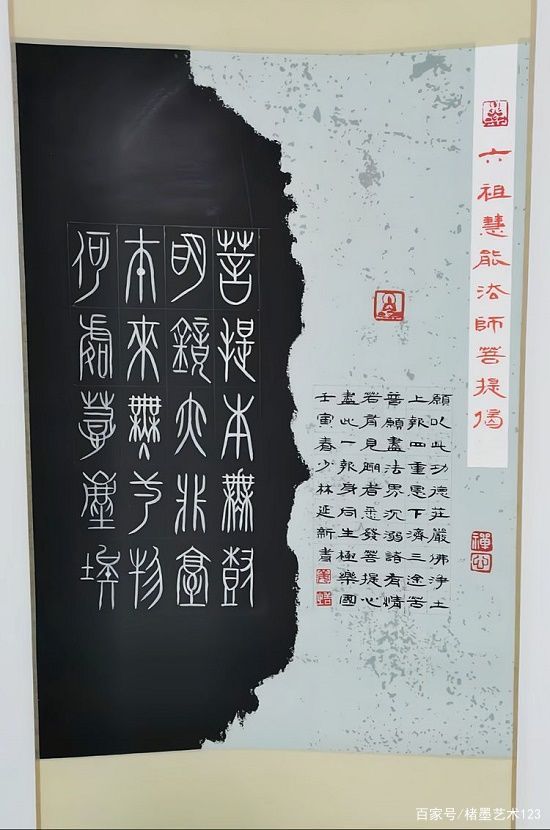 六祖慧能法師菩提偈
菩提本無樹
明鏡亦非臺
本來無一物
何處惹塵埃
願以此功德莊嚴佛淨土
上報四重恩下濟三途苦
普願盡法界沉溺諸有情
若有見聞者悉發菩提心
盡此一報身同生極樂國
壬寅春少林延新書
禪心
百家号/楮墨艺术123